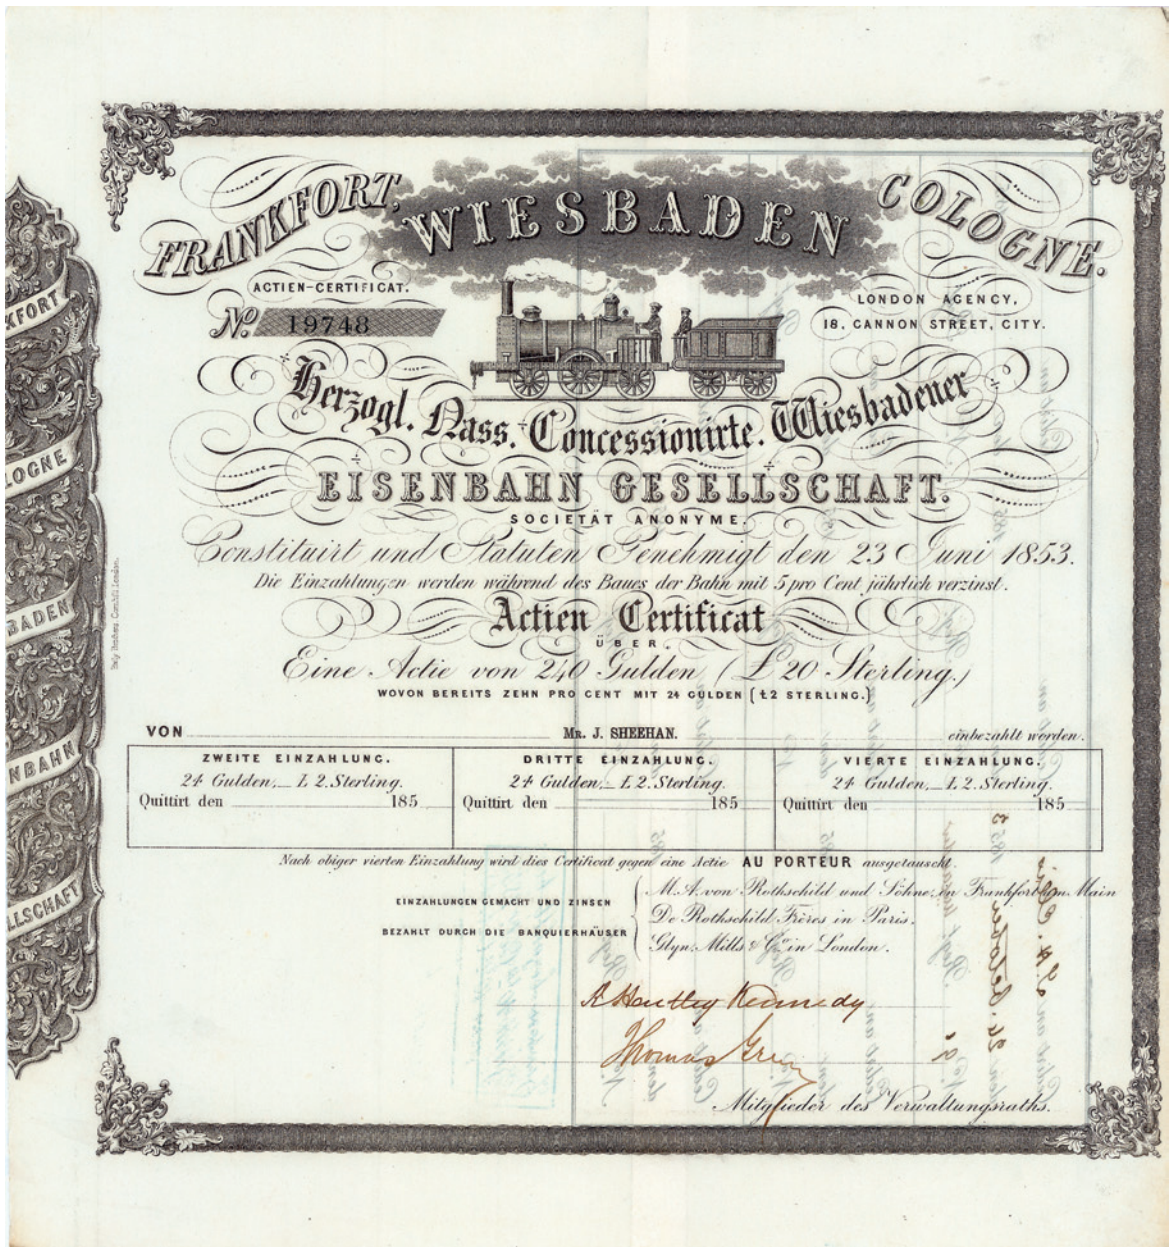 FRANKFORT, WIESBADEN COLOGNE.
ACTIEN-CERTIFICAT.
No. 19748
LONDON AGENCY,
18, CANNON STREET, CITY.
Herzogl. Nass. Concessionirte. Wiesbadener
EISENBAHN GESELLSCHAFT.
SOCIETÄT ANONYME.
Constituirt und Statuten Genehmigt den 23 Juni 1853.
Die Einzahlungen werden während des Baues der Bahn mit 5 pro Cent jährlich verzinst.
Actien Certificat
ÜBER
Eine Actie von 240 Gulden (£ 20 Sterling.)
WOVON BEREITS ZEHN PRO CENT MIT 24 GULDEN (£2 STERLING.)
VON MR. J. SHEEHAN. einbezahlt worden.
ZWEITE EINZAHLUNG.
24 Gulden,_ £ 2. Sterling.
Quittirt den 185
DRITTE EINZAHLUNG.
24 Gulden,_ £ 2. Sterling.
Quittirt den 185
VIERTE EINZAHLUNG.
24 Gulden,_ £ 2. Sterling.
Quittirt den 185
Nach obiger vierten Einzahlung wird dies Certificat gegen eine Actie AU PORTEUR ausgetauscht.
EINZAHLUNGEN GEMACHT UND ZINSEN
BEZAHLT DURCH DIE BANQUIERHÄUSER
M. A. von Rothschild und Söhne, in Frankfort am Main
De Rothschild Frères in Paris.
Glyn, Mills & Co. in London.
A Hartley Kennedy
Thomas
Mitglieder des Verwaltungsraths.
KFORT
LOGNE
BADEN
NBAHN
LLSCHAFT